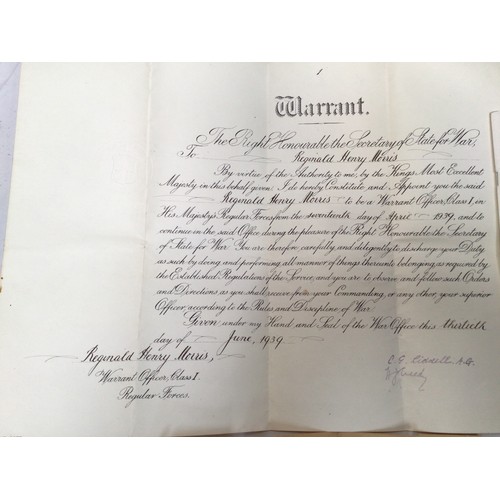 1
Warrant.
The Right Honourable the Secretary of State for War,
To Reginald Henry Morris
By virtue of the Authority to me, by the King's Most Excellent
Majesty in this behalf given I do hereby Constitute and Appoint you the said
Reginald Henry Morris to be a Warrant Officer, Class I, in
His Majesty's Regular Forces from the seventeenth day of April 1939, and to
continue in the said Office during the pleasure of the Right Honourable the Secretary
of State for War. You are therefore carefully and diligently to discharge your Duty
as such by doing and performing all manner of things thereunto belonging, as required by
the Established Regulations of the Service, and you are to observe and follow such Orders
and Directions as you shall receive from your Commanding, or any other, your superior
Officer, according to the Rules and Discipline of War.
Given under my Hand and Seal of the War Office this thirtieth
day of June, 1939.
Reginald Henry Morris,
Warrant Officer, Class I.
Regular Forces.